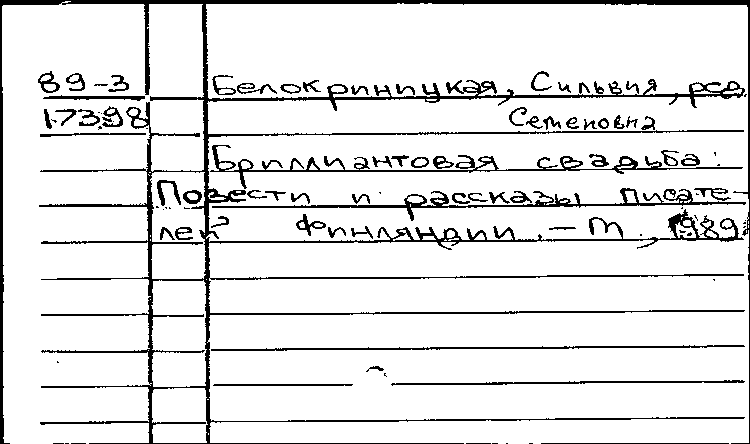 89-3 Белокриницкая, Сильвия, ред.
17398 Семеновна
Бриллиантовая свадьба:
Повести и рассказы писате-
лей Финляндии. - М., 1989